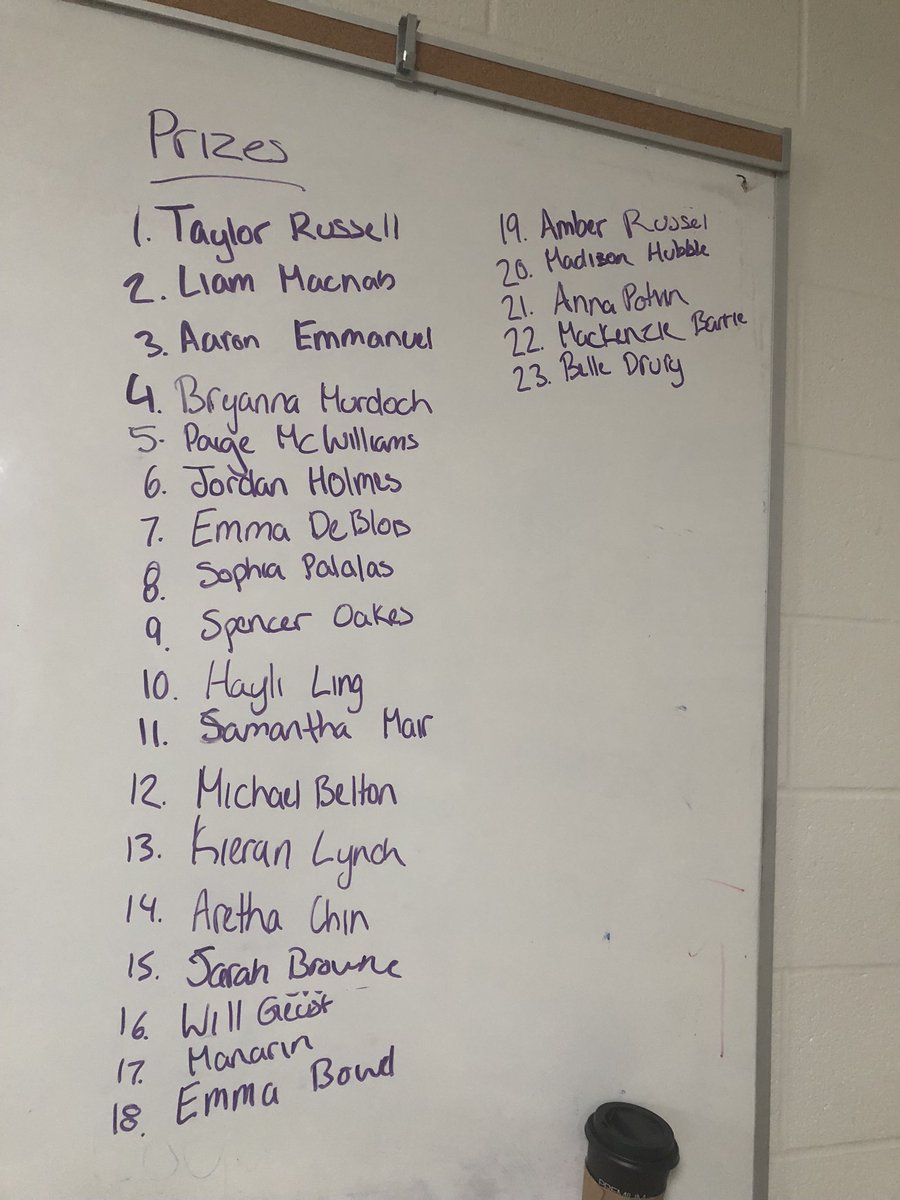 Prizes
1. Taylor Russell
2. Liam Macnab
3. Aaron Emmanuel
4. Bryanna Murdoch
5. Paige McWilliams
6. Jordan Holmes
7. Emma DeBlois
8. Sophia Palalas
9. Spencer Oakes
10. Hayli Ling
11. Samantha Mair
12. Michael Belton
13. Kieran Lynch
14. Aretha Chin
15. Sarah Browne
16. Will
17. Manarin
18. Emma Bowd
19. Amber Russel
20. Madison Hubble
21. Anna Potvin
22. Mackenzie Bartle
23. Belle Drury
PREMIUM